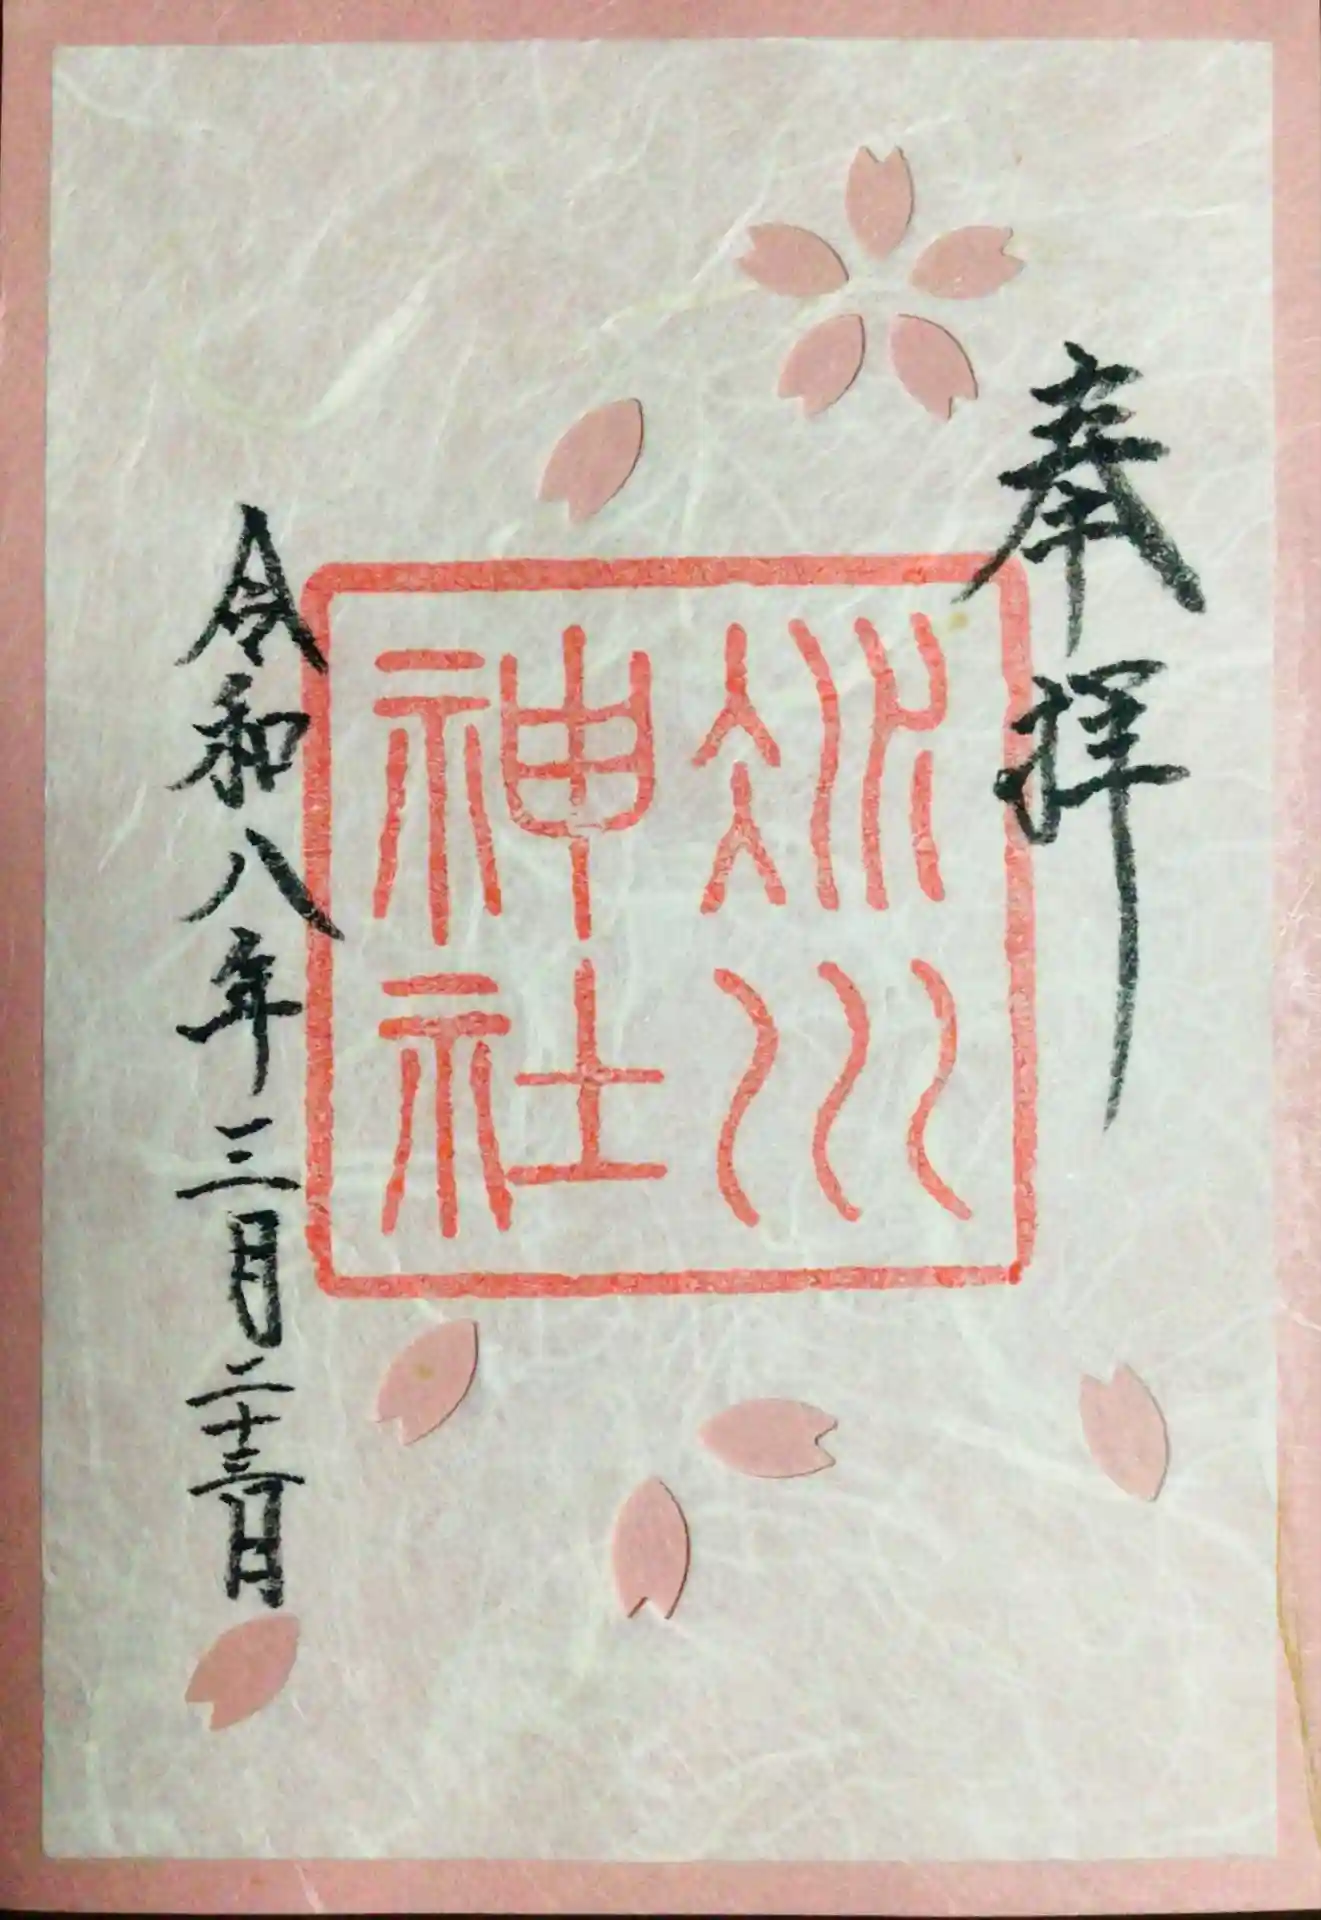 奉拝
冰川
神社
令和八年三月二十三日